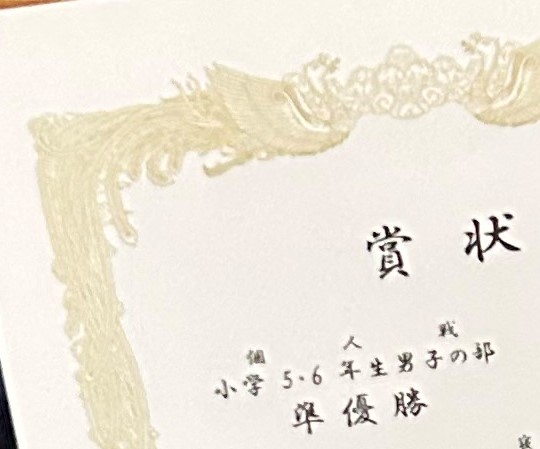 賞状
個人戦
小学5・6年生男子の部
準優勝